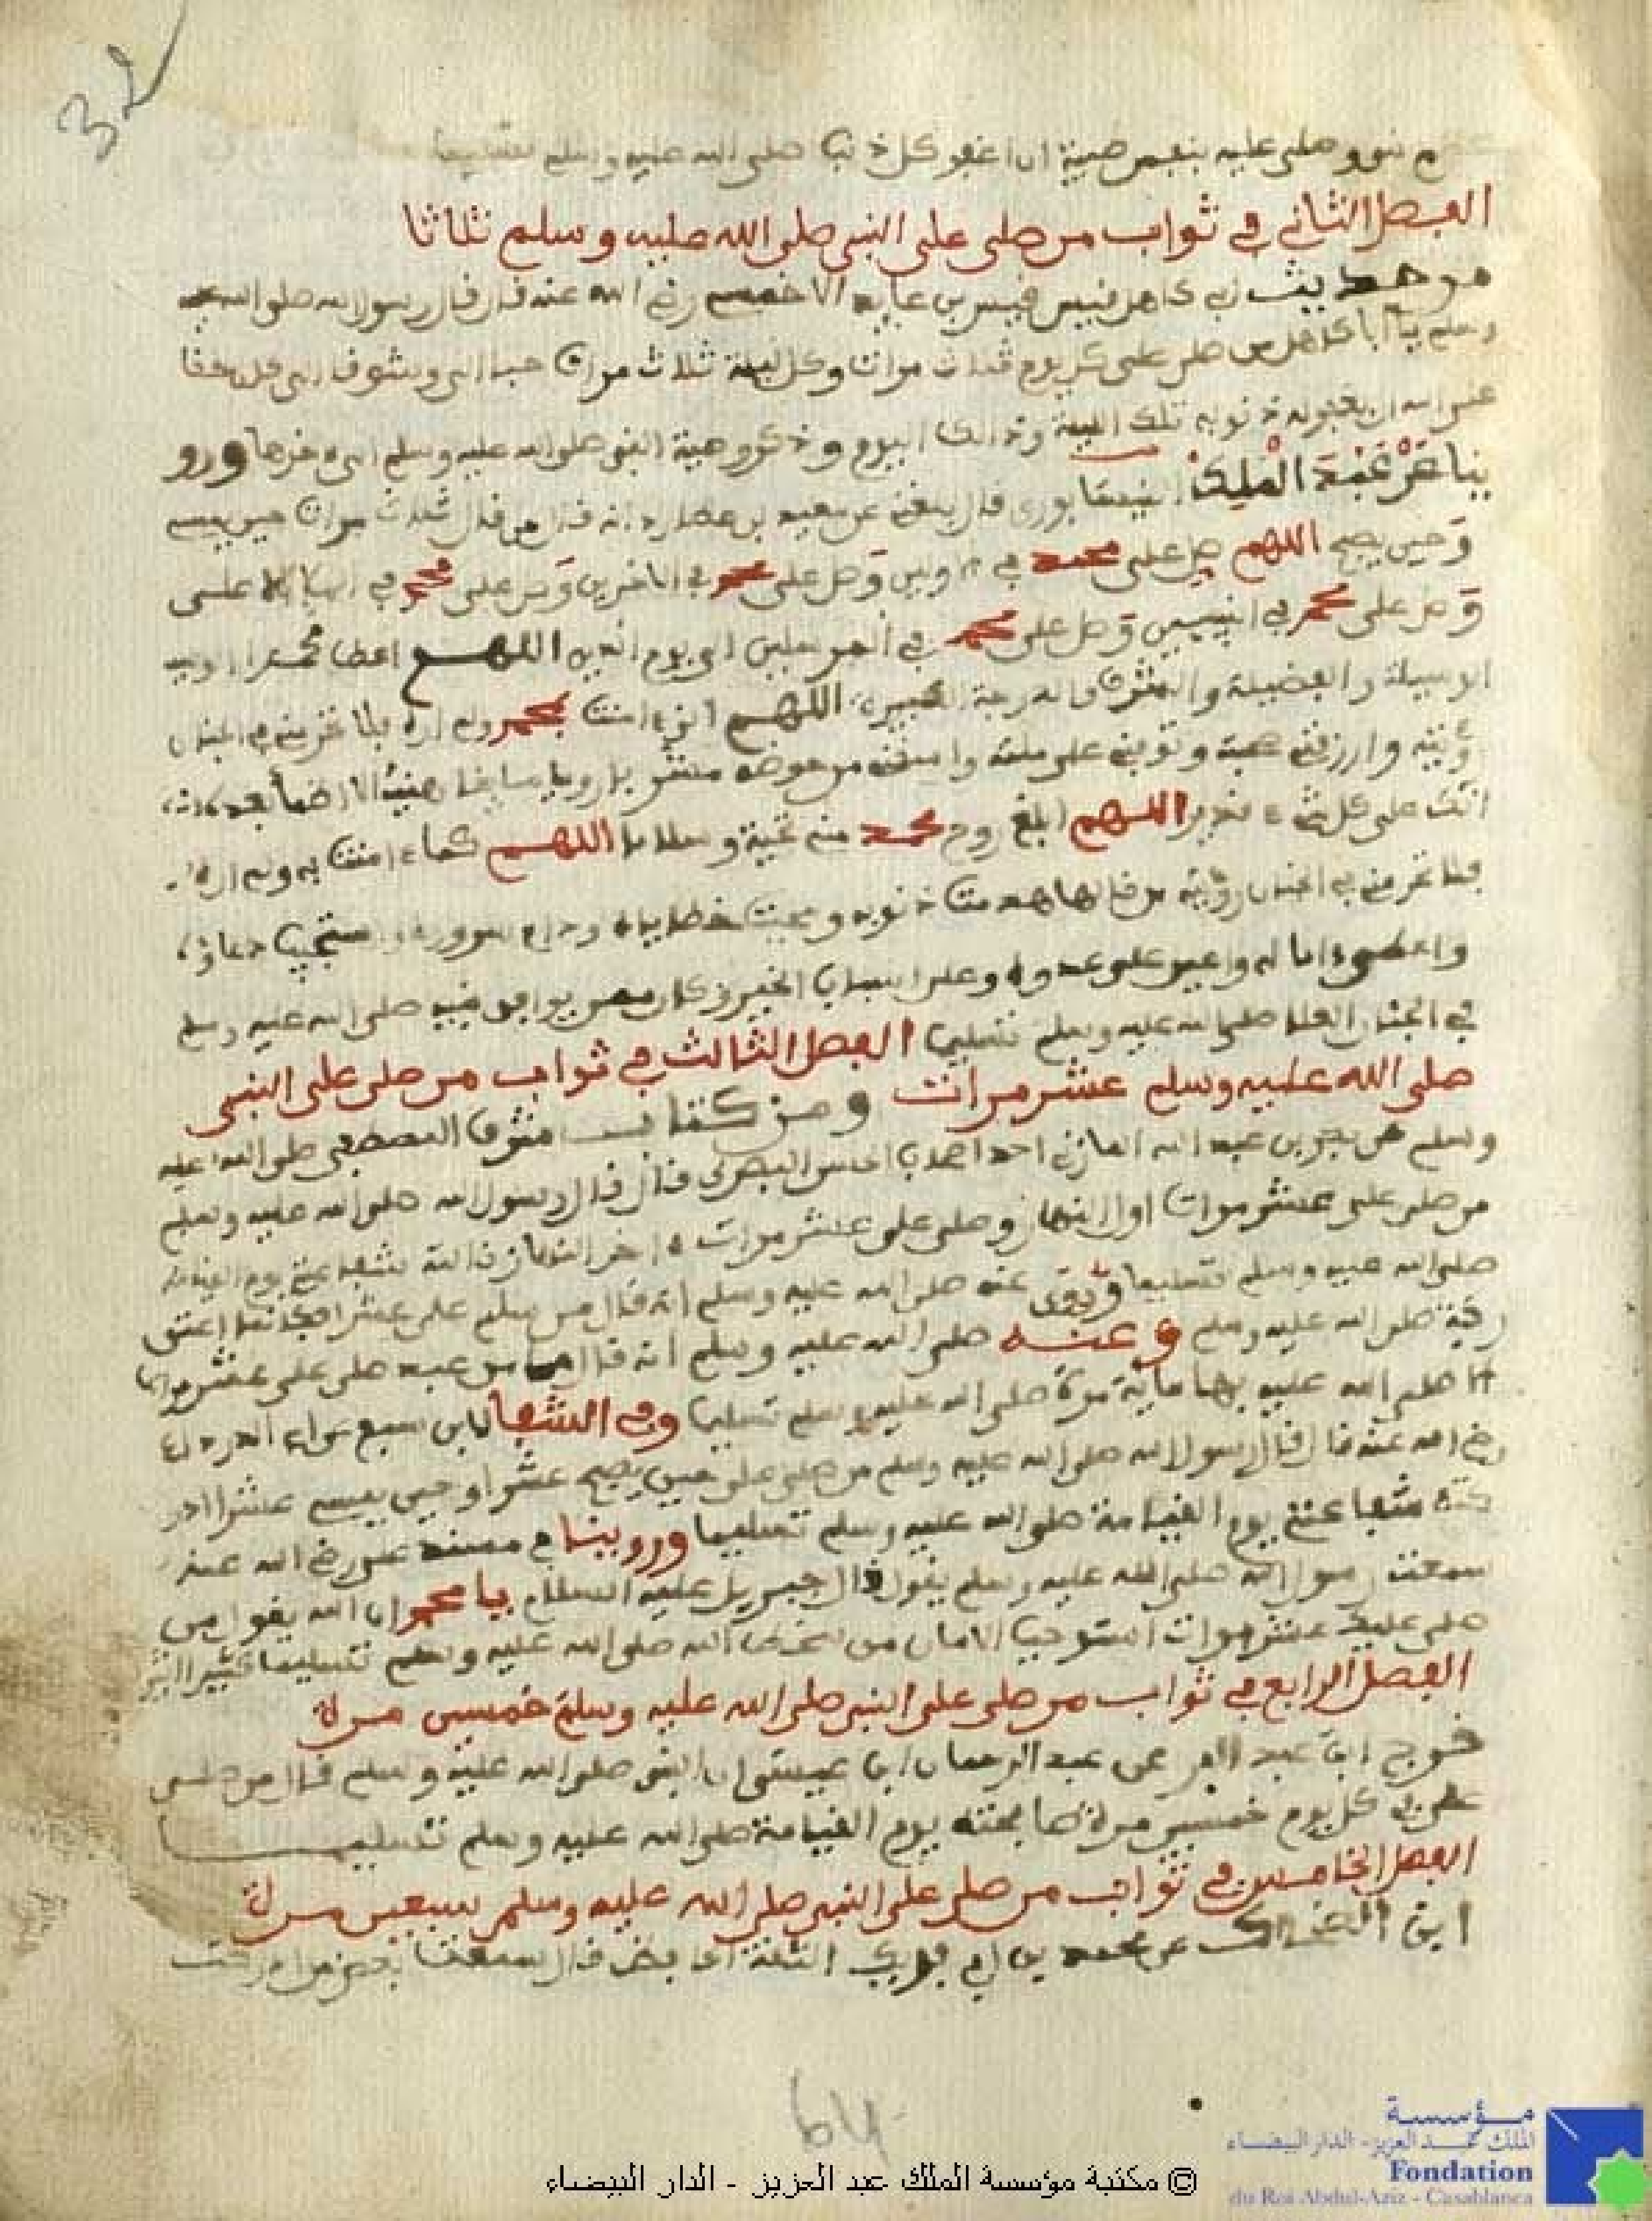 32
وصلى عليه بنفس طيبة ان اغفر كل ذنب صلى الله عليه وسلم تسليما
الفصل الثاني في ثواب من صلى على النبي صلى الله عليه وسلم ثلاثا
من حديث ابي كاهل قيس بن عايد الاحمسي رضي الله عنه قال قال رسول الله صلى الله عليه
وسلم يا ابا كاهل من صلى علي كل يوم ثلاث مرات وكل ليلة ثلاث مرات حبا الي وشوقا الي كان حقا
على الله ان يغفر له ذنوبه تلك الليلة وذالك اليوم وذكر وصية النبي صلى الله عليه وسلم الى اخرها ورو
ينا عن عبد الملك النيسابوري قال بلغني عن سعيد بن عطارد انه قال من قال ثلاث مرات حين يمسي
وحين يصبح اللهم صل على محمد في الاولين وصل على محمد في الاخرين وصل على محمد في الملا الاعلى
وصل على محمد في النبيين وصل على محمد في المرسلين الى يوم الدين اللهم اعط محمدا
الوسيلة والفضيلة والشرف والدرجة الكبيرة اللهم اني امنت بمحمد ولم اره فلا تحرمني في الجنان
رؤيته وارزقني صحبته وتوفني على ملته واسقني من حوضه مشربا رويا سايغا هنيئا لا اظمأ بعده
انك على كل شيء قدير اللهم ابلغ روح محمد مني تحية وسلاما اللهم كما امنت به ولم اره
فلا تحرمني في الجنان رؤيته من قالها هدمت ذنوبه ومحيت خطاياه ودام سروره واستجيب دعاؤه
واعطي اماله واعين على عدوه وعلى اسباب الخير وكان ممن يرافق نبيه صلى الله عليه وسلم
في الجنان العلا صلى الله عليه وسلم تسليما الفصل الثالث في ثواب من صلى على النبي
صلى الله عليه وسلم عشر مرات ومن كتاب شرف المصطفى صلى الله عليه
وسلم عن بكر بن عبد الله المازني احد اصحاب الحسن البصري قال قال رسول الله صلى الله عليه وسلم
من صلى علي عشر مرات اول النهار وصلى علي عشر مرات اخر النهار نالته شفاعتي يوم القيامة
صلى الله عليه وسلم تسليما وروى عنه صلى الله عليه وسلم انه قال من سلم علي عشرا فكانما اعتق
رقبة صلى الله عليه وسلم وعنه صلى الله عليه وسلم انه قال ما من عبد صلى علي عشر مرات
الا صلى الله عليه بها ماية مرة صلى الله عليه وسلم تسليما وفي الشفا لابن سبع عن ابي الدرداء
رضي الله عنه قال قال رسول الله صلى الله عليه وسلم من صلى علي حين يصبح عشرا وحين يمسي عشرا ادر
كته شفاعتي يوم القيامة صلى الله عليه وسلم تسليما وروينا في مسند رضي الله عنه
سمعت رسول الله صلى الله عليه وسلم يقول قال جبريل عليه السلام يا محمد ان الله يقول من
صلى عليك عشر مرات استوجب الامان من سخط الله صلى الله عليه وسلم تسليما كثيرا
الفصل الرابع في ثواب من صلى على النبي صلى الله عليه وسلم خمسين مرة
خرج ابن عبد البر عن عبد الرحمان ابن عيسى ان النبي صلى الله عليه وسلم قال من صلى
علي في كل يوم خمسين مرة صافحته يوم القيامة صلى الله عليه وسلم تسليما
الفصل الخامس في ثواب من صلى على النبي صلى الله عليه وسلم سبعين مرة
ابن عن محمد بن ابي فديك الثقة قال سمعت بعض من ادركت
64
مؤسسة
الملك عبد العزيز - الدار البيضاء
Fondation
du Roi Abdul-Aziz - Casablanca
© مكتبة مؤسسة الملك عبد العزيز - الدار البيضاء